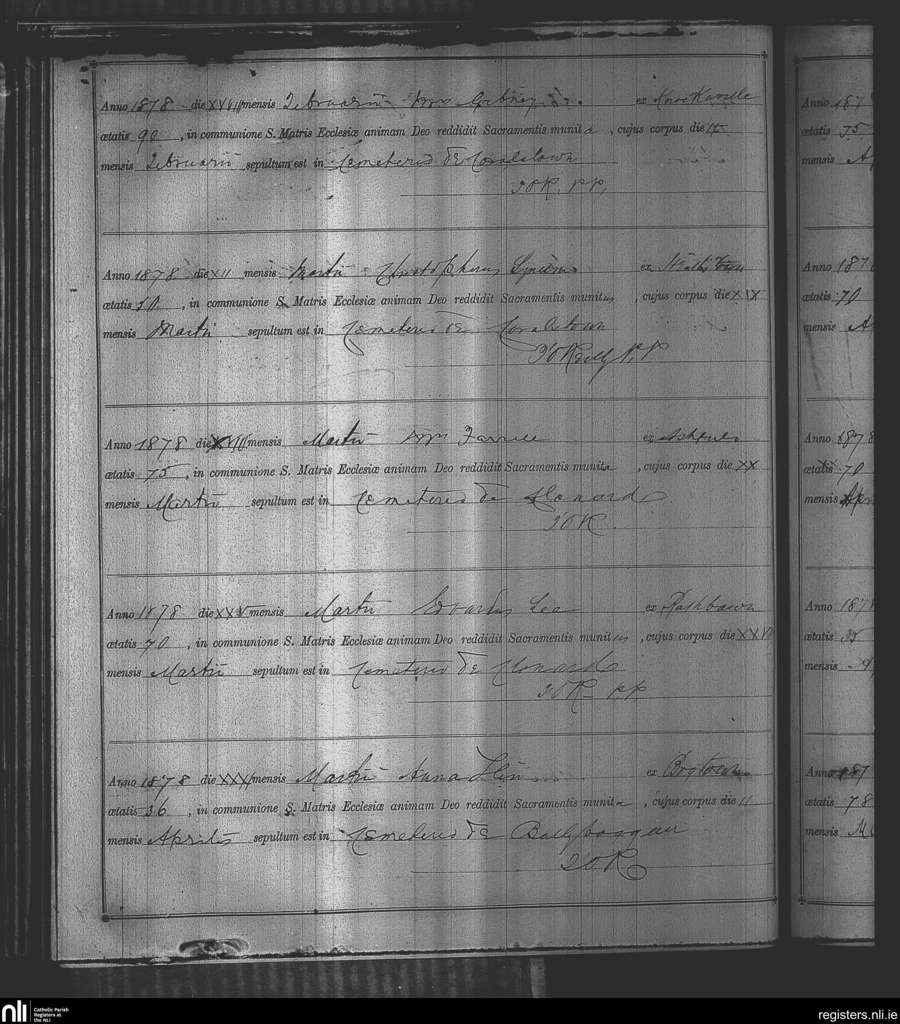 Anno 1878 die XVII mensis Februarii ex
ætatis 90, in communione S. Matris Ecclesiæ animam Deo reddidit Sacramentis munita, cujus corpus die
mensis Februarii sepultum est in Cemeterio de Coralstown
P.P.
Anno 1878 die XII mensis Martii Christopherus ex
ætatis 50, in communione S. Matris Ecclesiæ animam Deo reddidit Sacramentis munitus, cujus corpus die XIX
mensis Martii sepultum est in Cemeterio de Coralstown
JO'Reilly P.P
Anno 1878 die XVII mensis Martii Farrell ex
ætatis 75, in communione S. Matris Ecclesiæ animam Deo reddidit Sacramentis munita, cujus corpus die XX
mensis Martii sepultum est in Cemeterio de Clonard
JOR
Anno 1878 die XXV mensis Martii Lee ex Rathbawn
ætatis 70, in communione S. Matris Ecclesiæ animam Deo reddidit Sacramentis munitus, cujus corpus die XXVI
mensis Martii sepultum est in Cemeterio de Clonard
JOR P.P.
Anno 1878 die XXXI mensis Martii Anna ex Bogtown
ætatis 36, in communione S. Matris Ecclesiæ animam Deo reddidit Sacramentis munita, cujus corpus die 11
mensis Aprilis sepultum est in Cemeterio de
JOR
Anno 187
ætatis 75
mensis A
Anno 187
ætatis 70
mensis A
Anno 1878
ætatis 70
mensis Apr
Anno 187
ætatis 35
mensis
Anno 187
ætatis 78
mensis M
nli Catholic Parish
Registers at
the NLI
registers.nli.ie